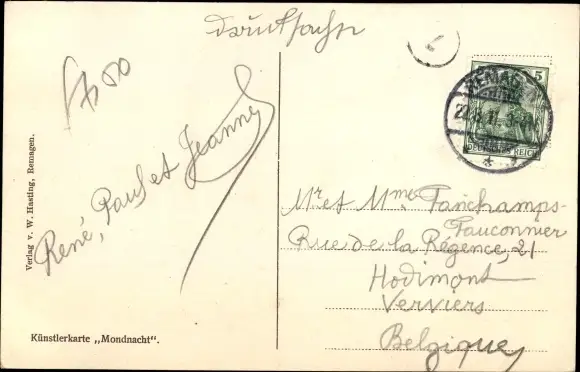 Drucksache
René, Paul et Jeanne
Verlag v. W. Hasting, Remagen.
Künstlerkarte „Mondnacht".
REMAGEN
5
DEUTSCHES REICH
Mr et Mme Fanchamps-
Fauconnier
Rue de la Régence, 21
Hodimont
Verviers
Belgique